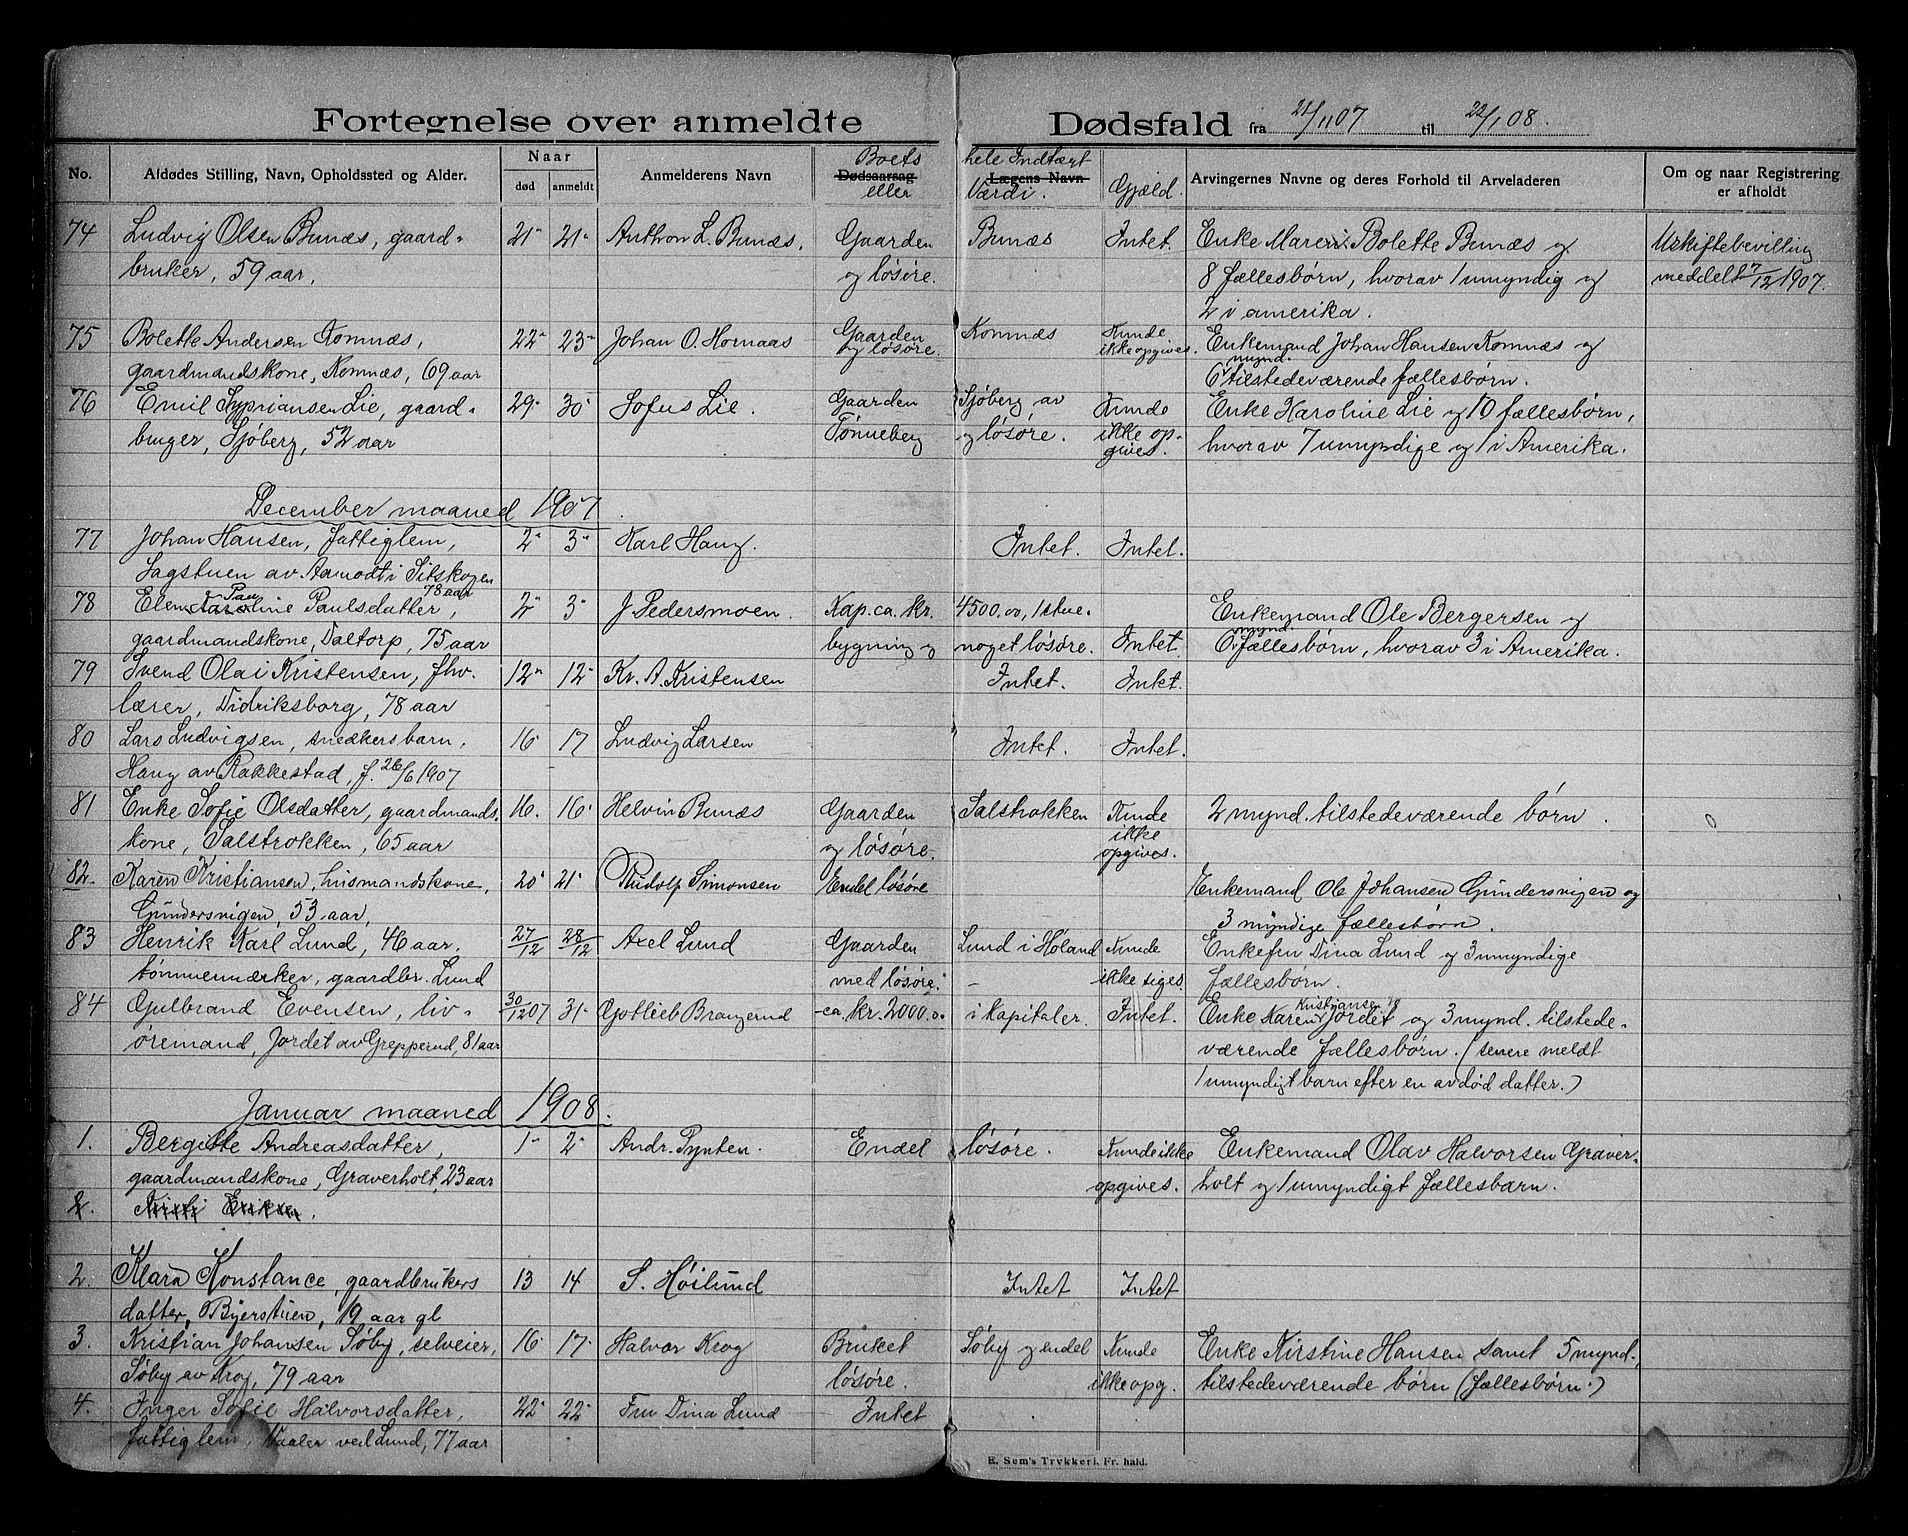 Fortegnelse over anmeldte Dødsfald fra 21/11 07 til 22/1 08.
No. Afdødes Stilling, Navn, Opholdssted og Alder. Naar død anmeldt Anmelderens Navn Dødsaarsag Boets eller Lægens Navn hele Indtægt Værdi. Gjæld. Arvingernes Navne og deres Forhold til Arveladeren Om og naar Registrering er afholdt
74 Ludvig Olsen Bunæs, gaard- 21- 21- Anthon L. Bunæs. Gaarden Bunæs Intet. Enke Maren Bolette Bunæs og Uskiftebevilling
bruker, 59 aar, og løsøre. 8 fællesbørn, hvorav 1 umyndig og meddelt 7/12 1907.
2 i amerika.
75 Bolette Andersen Komnæs, 22- 23- Johan O. Hornaas Gaarden Komnæs Kunde Enkemand Johan Hansen Komnæs og
og løsøre. ikke opgives.
gaardmandskone, Komnæs, 69 aar 6 mynd. tilstedeværende fællesbørn.
76 Emil Sypriansen Lie, gaard- 29- 30- Sofus Lie. Gaarden Sjøberg av Kunde Enke Karoline Lie og 10 fællesbørn,
bruger, Sjöberg, 52 aar Tønneberg og løsøre. ikke op- hvorav 7 umyndige og 1 i Amerika.
gives.
December maaned 1907.
77 Johan Hansen, fattiglem, 2- 3- Karl Haug. Intet. Intet.
Sagstuen av Aamodt i Sitskogen
78 aar
78 Elen Pauline Paulsdatter, 2- 3- J. Pedersmoen Kap. ca. kr. 4500.00, 1 stue- Enkemand Ole Bergersen og
gaardmandskone, Daltorp, 75 aar bygning og noget løsøre. Intet. 6 mynd. fællesbørn, hvorav 3 i Amerika.
79 Svend Olai Kristensen, fhv. 12- 12- Kr. A. Kristensen Intet. Intet.
lærer, Didriksborg, 78 aar
80 Lars Ludvigsen, snedkersbarn, 16- 17 Ludvig Larsen Intet. Intet.
Haug av Rakkestad, f. 26/6 1907
81 Enke Sofie Olsdatter, gaardmands- 16. 16- Helvin Bunæs Gaarden Salstrokken Kunde 2 mynd. tilstedeværende børn.
kone, Salstrokken, 65 aar og løsøre. ikke opgives.
82. Karen Kristiansen, husmandskone, 20- 21- Rudolf Simonsen Endel løsøre Enkemand Ole Johansen Gundersvigen og
Gundersvigen, 53 aar, 3 myndige fællesbørn.
83 Henrik Karl Lund, 46 aar. 27/12 28/12 Axel Lund Gaarden Lund i Høland Kunde Enkefru Dina Lund og 3 umyndige
tømmermærker, gaardbr. Lund med løsøre. - ikke siges. fællesbørn.
84 Gulbrand Evensen, liv- 30/12 07 31- Gotlieb Brangerud ca. kr. 2000.00 i kapitaler. Intet. Enke Karen Kristiansen Jordet og 3 mynd. tilstede-
øremand, Jordet av Grepperud, 81 aar værende fællesbørn. (senere meldt
1 umyndigt barn efter en avdød datter.)
Januar maaned 1908.
1. Bergitte Andreasdatter, 1- 2- Andr. Tynten. Endel løsøre. Kunde ikke Enkemand Olav Halvorsen Graver-
gaardmandskone, Graverholt, 23 aar opgives. holt og 1 umyndigt fællesbarn.
2. Kirsti Eriksen.
2. Klara Konstance, gaardbrukers 13 14 S. Höilund Intet Intet
datter, Byerstuen, 19 aar gl
3. Kristian Johansen Søby, selveier, 16- 17- Halvor Krog Bruket Søby og endel Kunde Enke Kirstine Hansen samt 5 mynd.
Søby av Krog, 79 aar løsøre. ikke opg. tilstedeværende børn (fællesbørn.)
4. Inger Sofie Halvorsdatter, 22- 22- Fru Dina Lund Intet
fattiglem, Vaaler ved Lund, 77 aar
E. Sem's Trykkeri. Fr. hald.